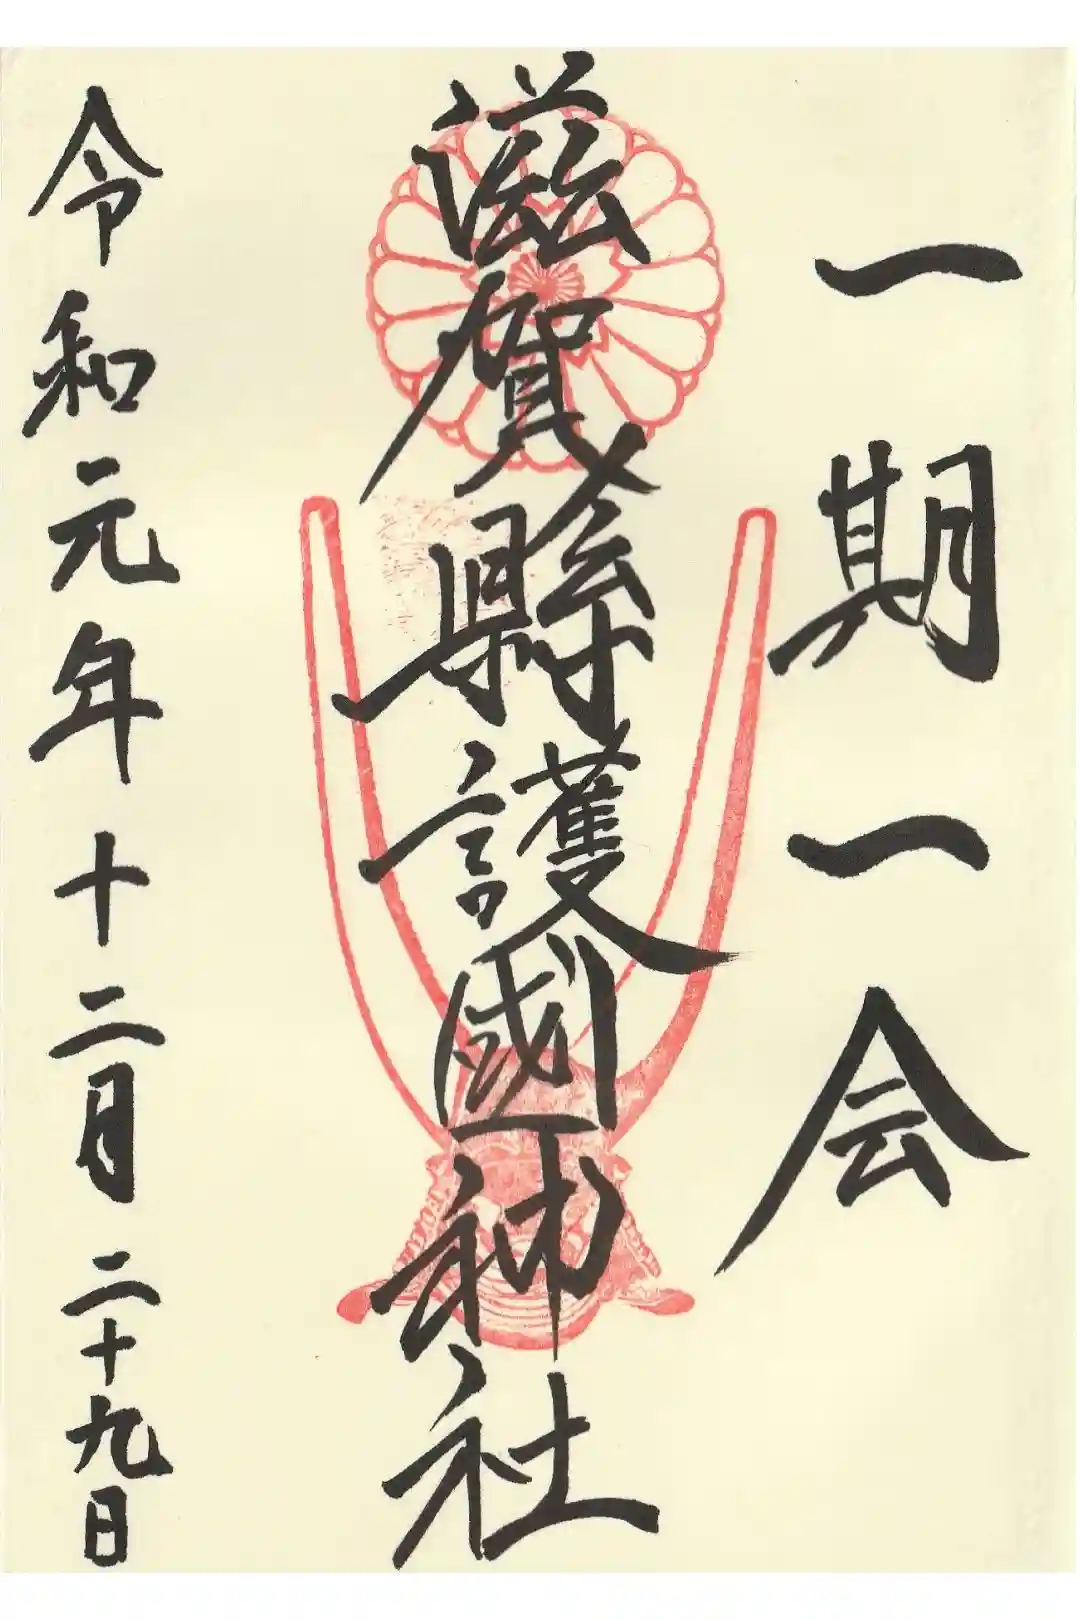 一期一会
滋賀縣護國神社
令和元年十二月二十九日